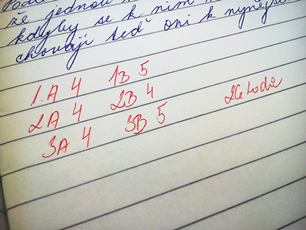 že jednou
kdyby se k nim
chovají teď oni k nynější
1.A 4 1B 5
2A 4 2B 4
3A 4 3B 5
26 bodů